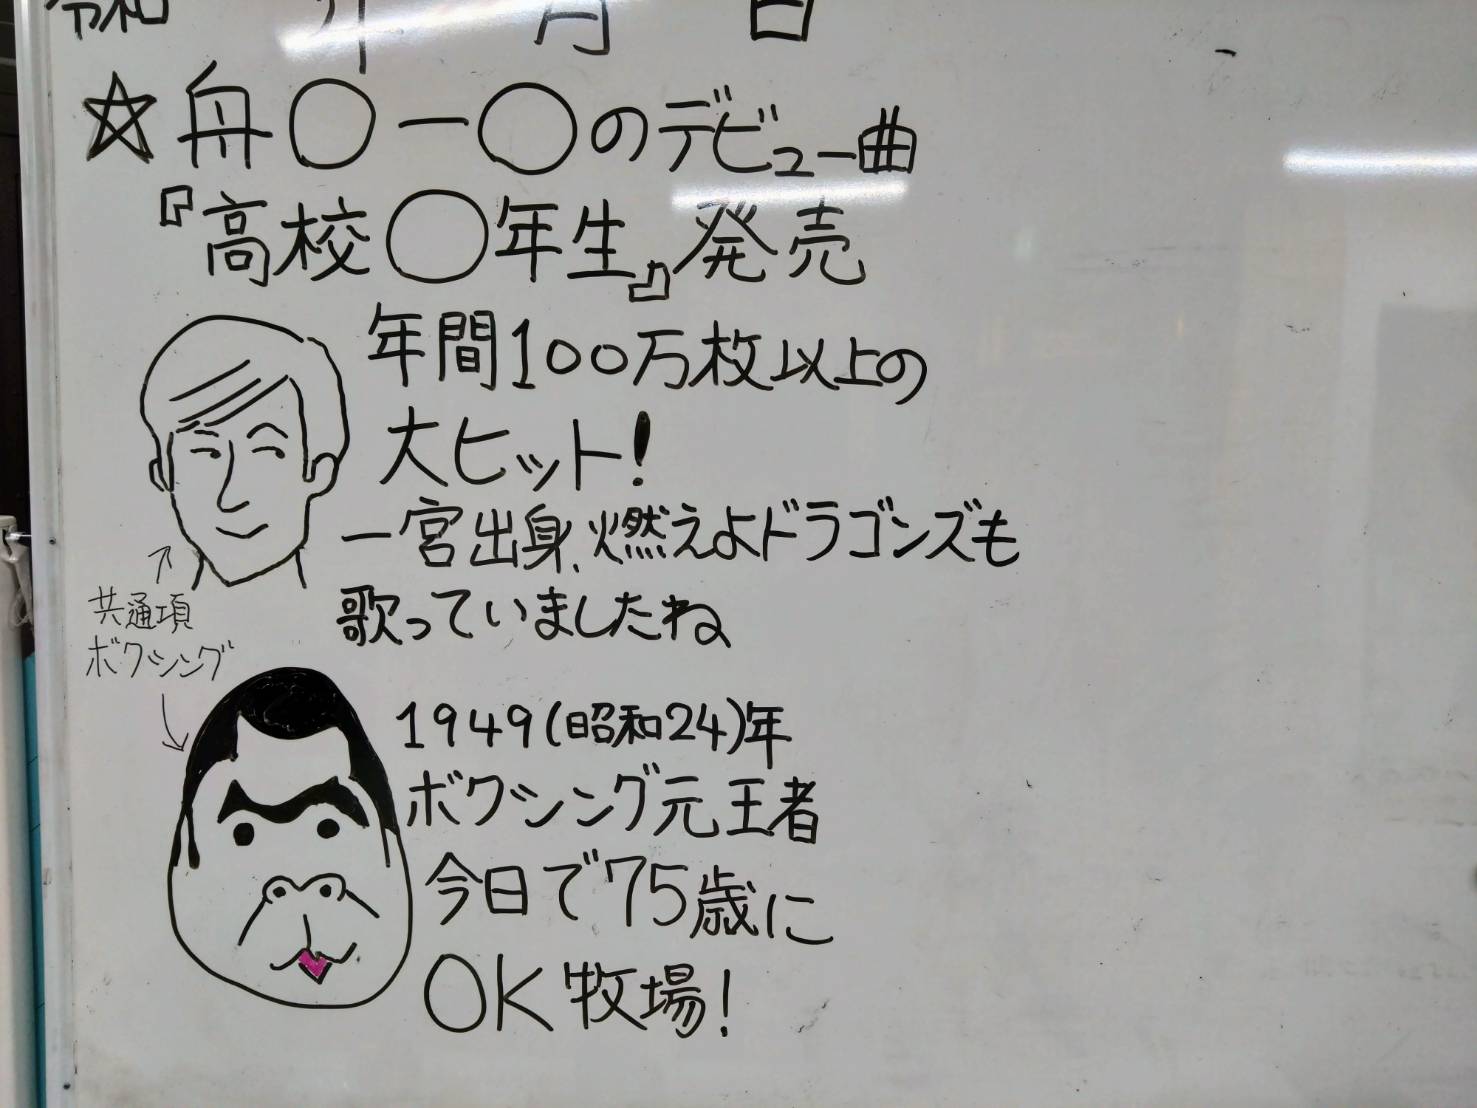 令和 年 月 日
☆舟〇一〇のデビュー曲
『高校〇年生』発売
年間100万枚以上の
大ヒット!
一宮出身、燃えよドラゴンズも
歌っていましたね
共通項
ボクシング
1949(昭和24)年
ボクシング元王者
今日で75歳に
OK牧場!